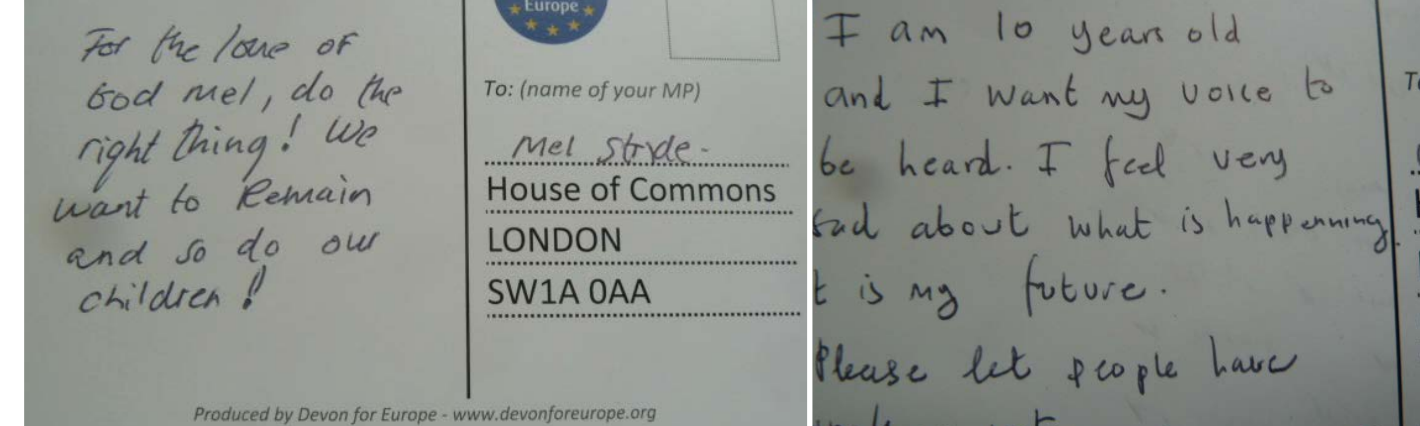 For the love of
God Mel, do the
right thing! We
want to Remain
and so do our
children!
Europe
To: (name of your MP)
Mel Stride-
House of Commons
LONDON
SW1A 0AA
Produced by Devon for Europe - www.devonforeurope.org
I am 10 years old
and I want my voice to
be heard. I feel very
sad about what is happenning.
t is my future.
Please let people have